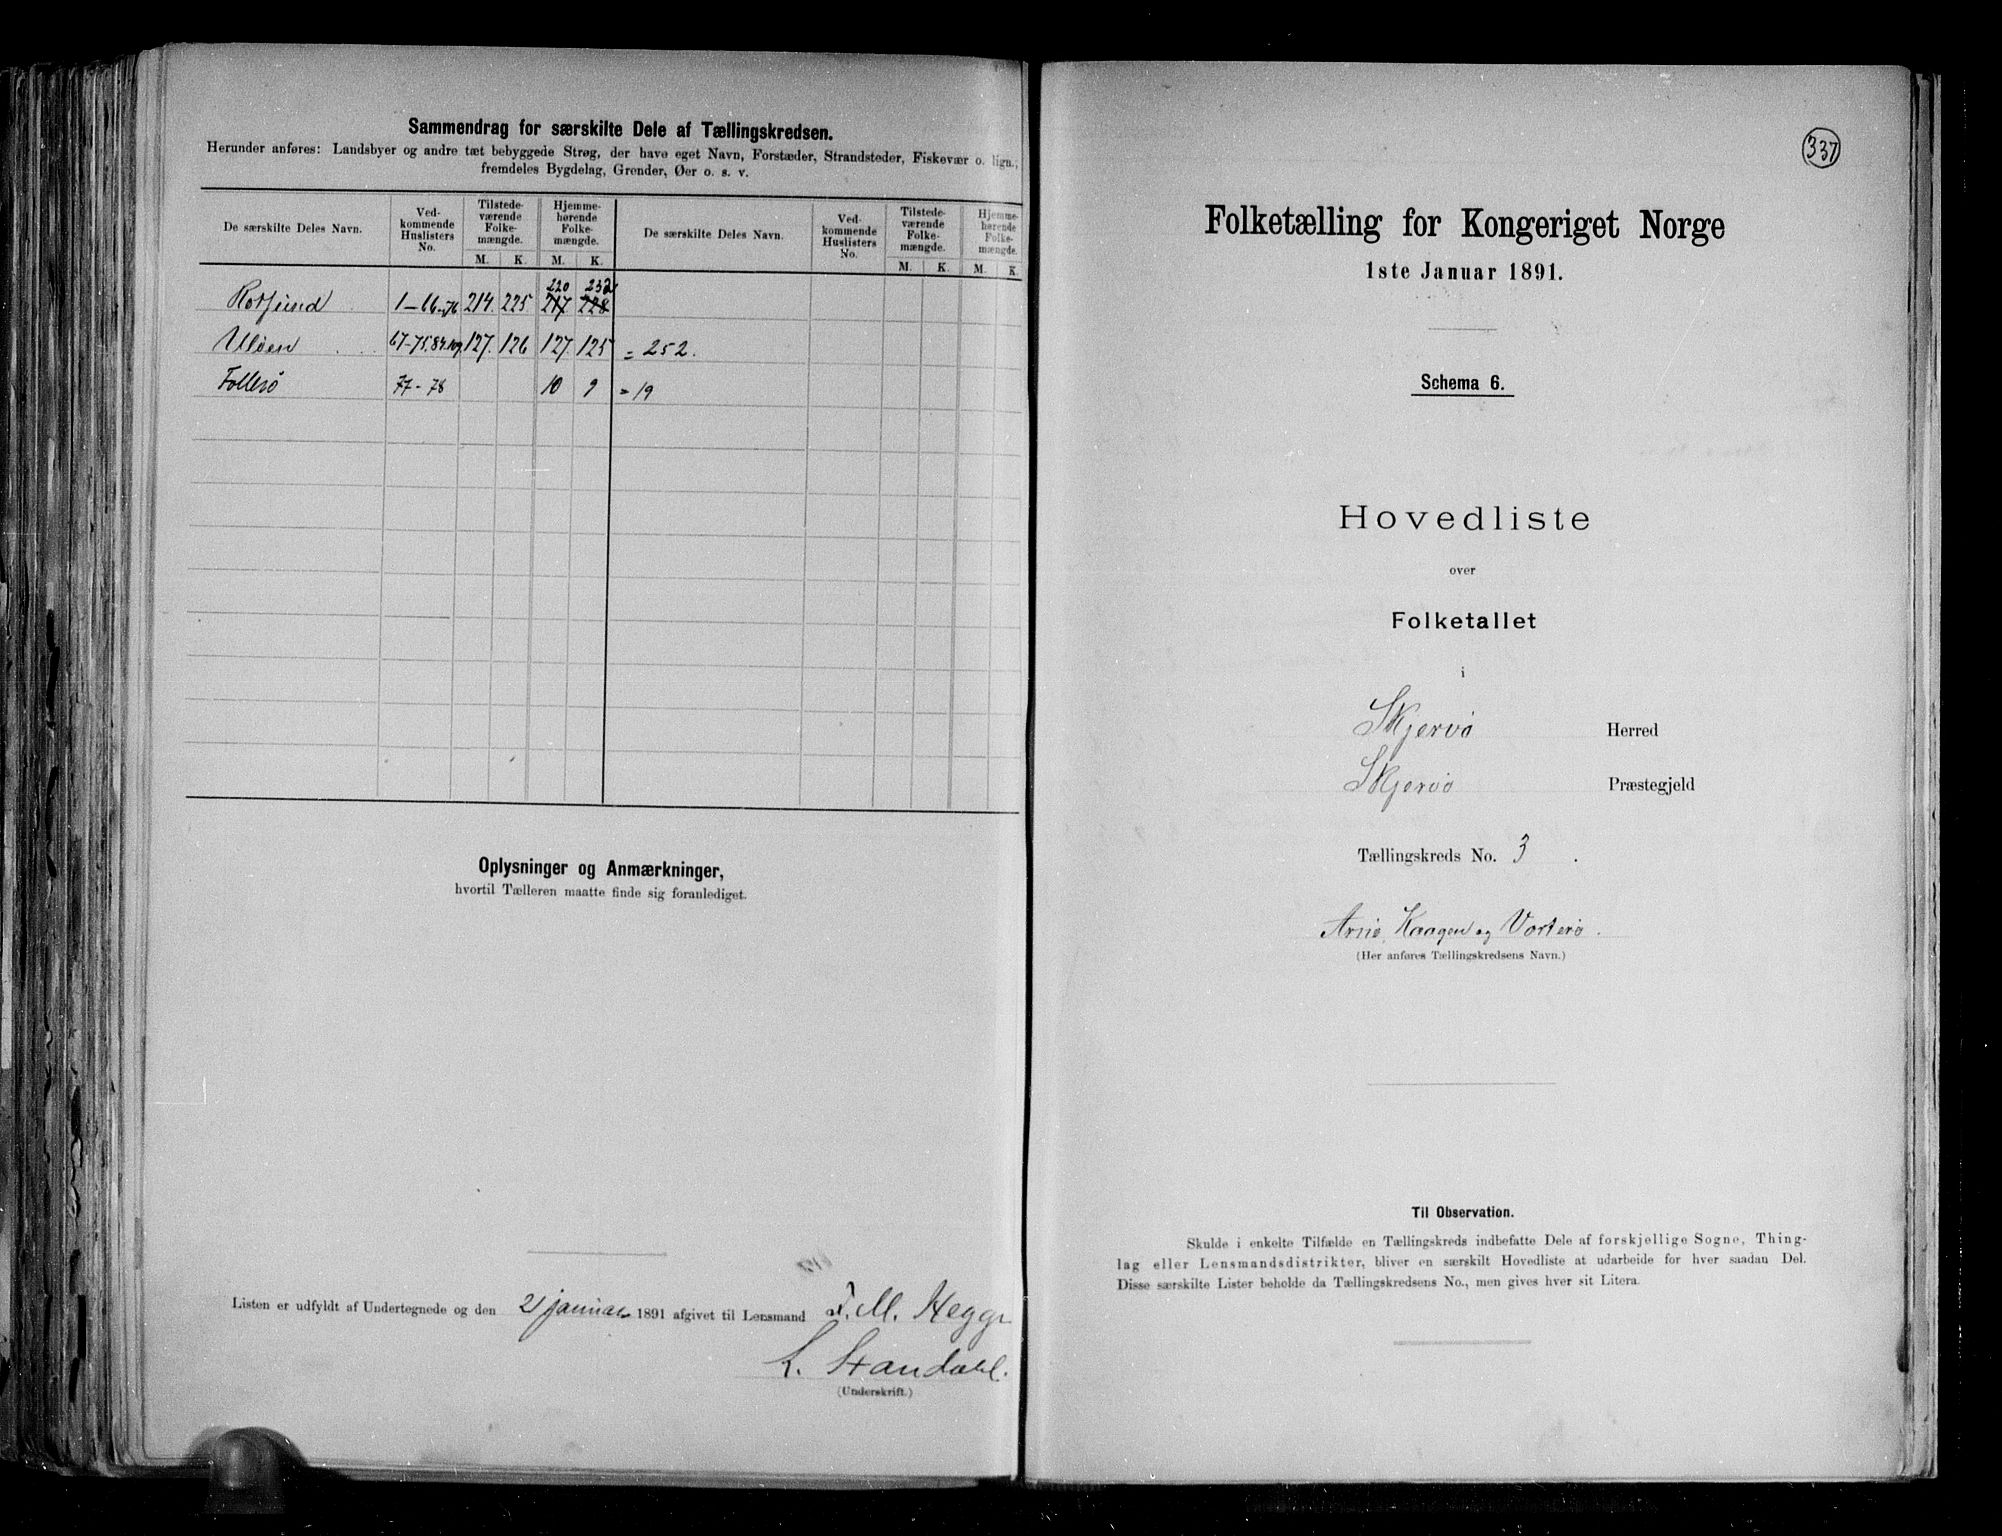 Sammendrag for særskilte Dele af Tællingskredsen.
Herunder anføres: Landsbyer og andre tæt bebyggede Strøg, der have eget Navn, Forstæder, Strandsteder, Fiskevær o. lign.,
fremdeles Bygdelag, Grender, Øer o. s. v.
De særskilte Deles Navn. Ved-kommende Huslisters No. Tilstede-værende Folke-mængde. Hjemme-hørende Folke-mængde. De særskilte Deles Navn. Ved-kommende Huslisters No. Tilstede-værende Folke-mængde. Hjemme-hørende Folke-mængde.
M. K. M. K. M. K. M. K.
220 232
Rotsund 1-66-76 214. 225 217 228
Uløen 67-75. 127. 126 127. 125 = 252.
Follesø 77-78 10 9 = 19
Oplysninger og Anmærkninger,
hvortil Tælleren maatte finde sig foranlediget.
Listen er udfyldt af Undertegnede og den 21 januar 1891 afgivet til Lensmand M. Hegge
L. Standahl.
(Underskrift.)
337
Folketælling for Kongeriget Norge
1ste Januar 1891.
Schema 6.
Hovedliste
over
Folketallet
i
Skjervø Herred
Skjervø Præstegjeld
Tællingskreds No. 3.
Arnø, Kaagen og Vorterø.
(Her anføres Tællingskredsens Navn.)
Til Observation.
Skulde i enkelte Tilfælde en Tællingskreds indbefatte Dele af forskjellige Sogne, Thing-
lag eller Lensmandsdistrikter, bliver en særskilt Hovedliste at udarbeide for hver saadan Del.
Disse særskilte Lister beholde da Tællingskredsens No., men gives hver sit Litera.